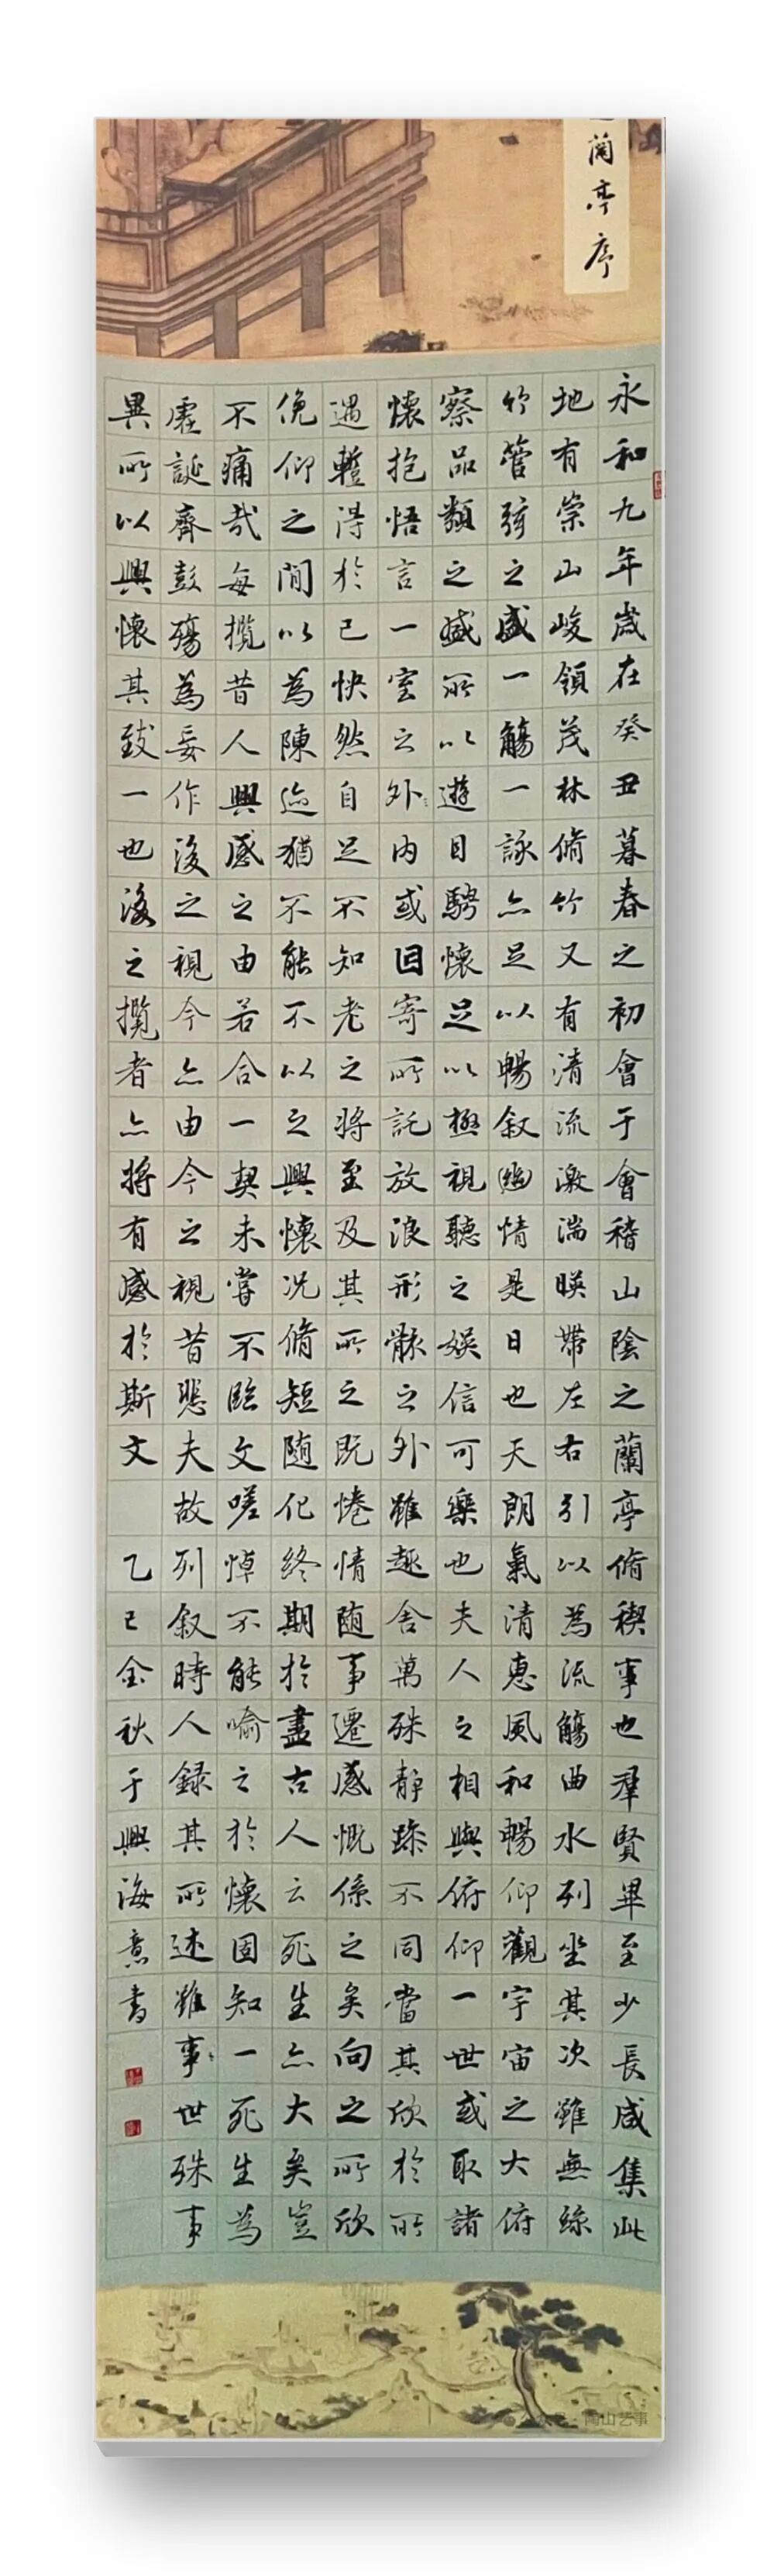 蘭亭序
永和九年歲在癸丑暮春之初會于會稽山陰之蘭亭脩稧事也羣賢畢至少長咸集此
地有崇山峻領茂林脩竹又有清流激湍暎帶左右引以為流觴曲水列坐其次雖無絲
竹管弦之盛一觴一詠亦足以暢叙幽情是日也天朗氣清惠風和暢仰觀宇宙之大俯
察品類之盛所以遊目騁懷足以極視聽之娛信可樂也夫人之相與俯仰一世或取諸
懷抱悟言一室之外內或因寄所託放浪形骸之外雖趣舍萬殊靜躁不同當其欣於所
遇蹔得於己快然自足不知老之將至及其所之既惓情随事遷感慨係之矣向之所欣
俛仰之閒以為陳迹猶不能不以之興懷況脩短随化終期於盡古人云死生亦大矣豈
不痛哉每攬昔人興感之由若合一契未嘗不臨文嗟悼不能喻之於懷固知一死生為
虛誕齊彭殤為妄作後之視今亦由今之視昔悲夫故列叙時人録其所述雖事世殊事
異所以興懷其致一也後之攬者亦將有感於斯文 乙巳金秋于興海意書